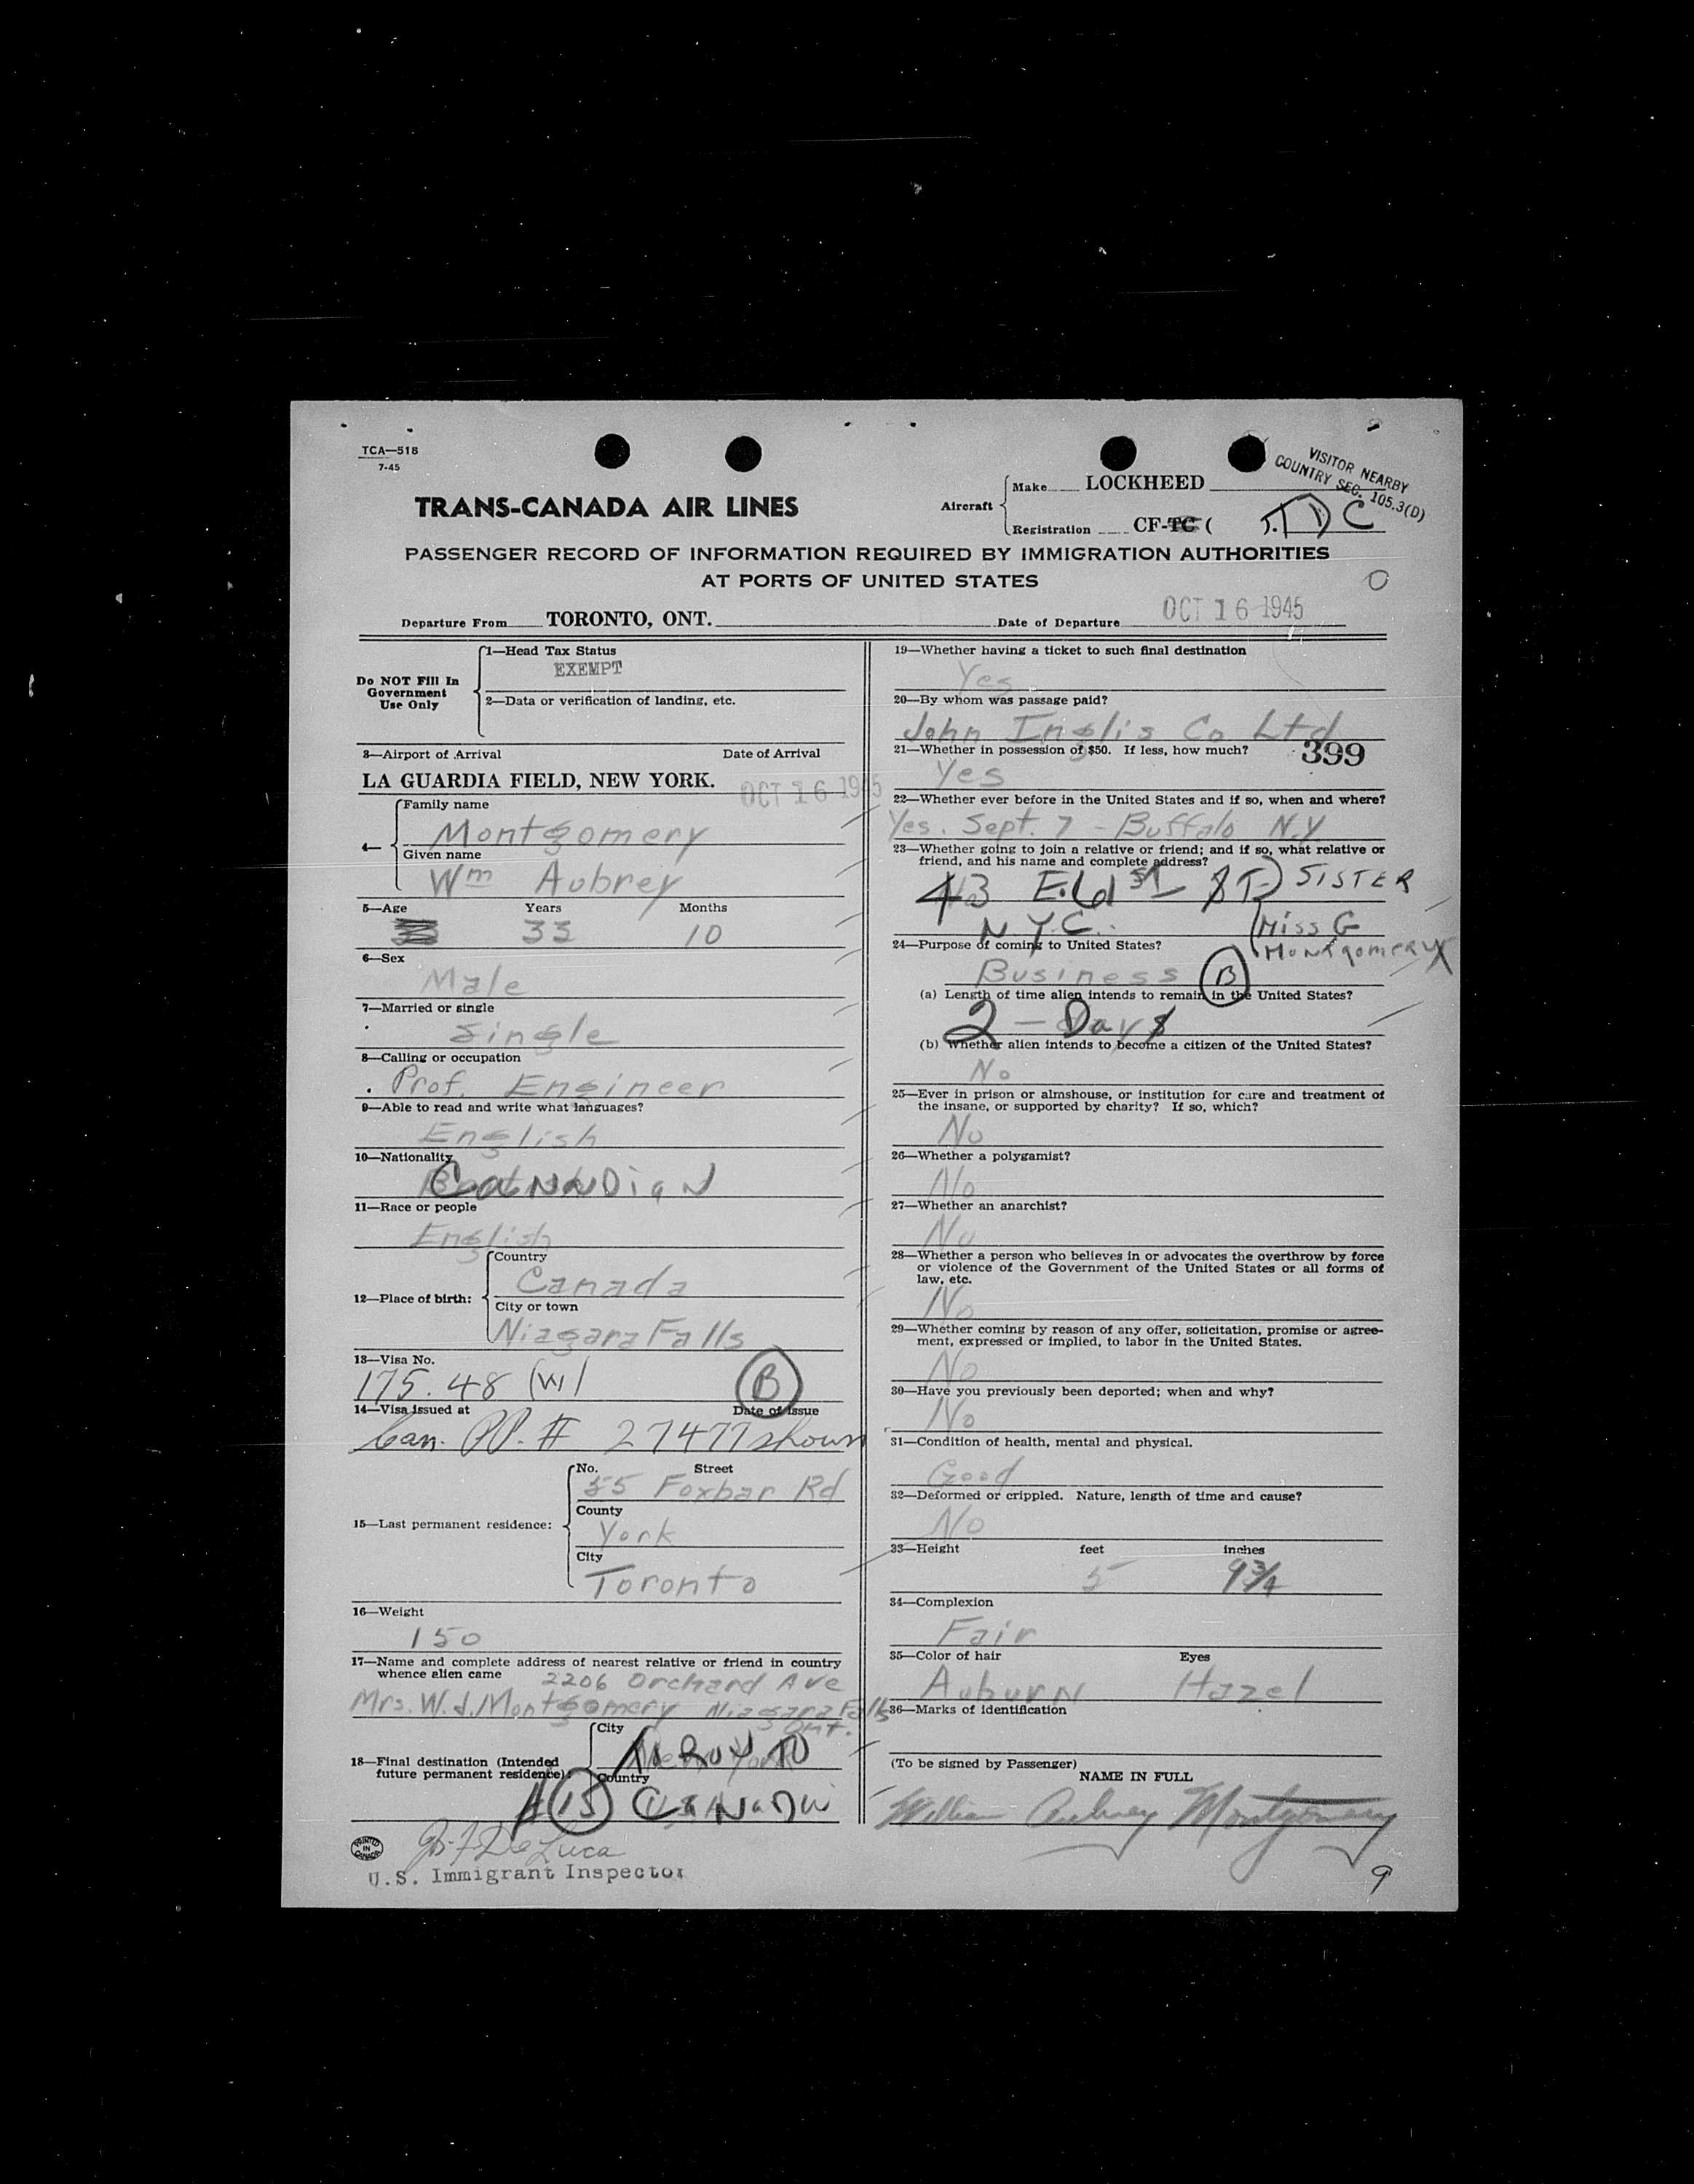 TCA—518
7-45
VISITOR NEARBY
COUNTRY SEC. 105.3(D)
TRANS-CANADA AIR LINES
Aircraft
Make LOCKHEED
Registration CF-TC ( T.D C
PASSENGER RECORD OF INFORMATION REQUIRED BY IMMIGRATION AUTHORITIES
AT PORTS OF UNITED STATES
Departure From TORONTO, ONT. Date of Departure OCT 16 1945
Do NOT Fill In
Government
Use Only
1—Head Tax Status
EXEMPT
2—Data or verification of landing, etc.
3—Airport of Arrival Date of Arrival
LA GUARDIA FIELD, NEW YORK. OCT 16 1945
4—
Family name
Montgomery
Given name
Wm Aubrey
5—Age Years Months
33 10
6—Sex
Male
7—Married or single
Single
8—Calling or occupation
Prof. Engineer
9—Able to read and write what languages?
English
10—Nationality
CANADIAN
11—Race or people
English
12—Place of birth:
Country
Canada
City or town
Niagara Falls
13—Visa No.
175.48 (W) B
14—Visa issued at Date of Issue
Can. PP. # 27477 shown
15—Last permanent residence:
No. Street
55 Foxbar Rd
County
York
City
Toronto
16—Weight
150
17—Name and complete address of nearest relative or friend in country
whence alien came 2206 Orchard Ave
Mrs. W.J. Montgomery Niagara Falls
Ont.
18—Final destination (Intended
future permanent residence):
City
Country
CANADA
De Luca
U.S. Immigrant Inspector
PRINTED
IN
CANADA
19—Whether having a ticket to such final destination
Yes
20—By whom was passage paid?
John Inglis Co Ltd
21—Whether in possession of $50. If less, how much? 399
Yes
22—Whether ever before in the United States and if so, when and where?
Yes. Sept. 7 - Buffalo N.Y
23—Whether going to join a relative or friend; and if so, what relative or
friend, and his name and complete address?
43 E. 61 ST ST) SISTER
N.Y.C. Miss G
Montgomery
24—Purpose of coming to United States?
Business B
(a) Length of time alien intends to remain in the United States?
2 - Days
(b) Whether alien intends to become a citizen of the United States?
No
25—Ever in prison or almshouse, or institution for care and treatment of
the insane, or supported by charity? If so, which?
No
26—Whether a polygamist?
No
27—Whether an anarchist?
No
28—Whether a person who believes in or advocates the overthrow by force
or violence of the Government of the United States or all forms of
law, etc.
No
29—Whether coming by reason of any offer, solicitation, promise or agree-
ment, expressed or implied, to labor in the United States.
No
30—Have you previously been deported; when and why?
No
31—Condition of health, mental and physical.
Good
32—Deformed or crippled. Nature, length of time and cause?
No
33—Height feet inches
5 9 3/4
34—Complexion
Fair
35—Color of hair Eyes
Auburn Hazel
36—Marks of identification
(To be signed by Passenger)
NAME IN FULL
William Aubrey Montgomery
9